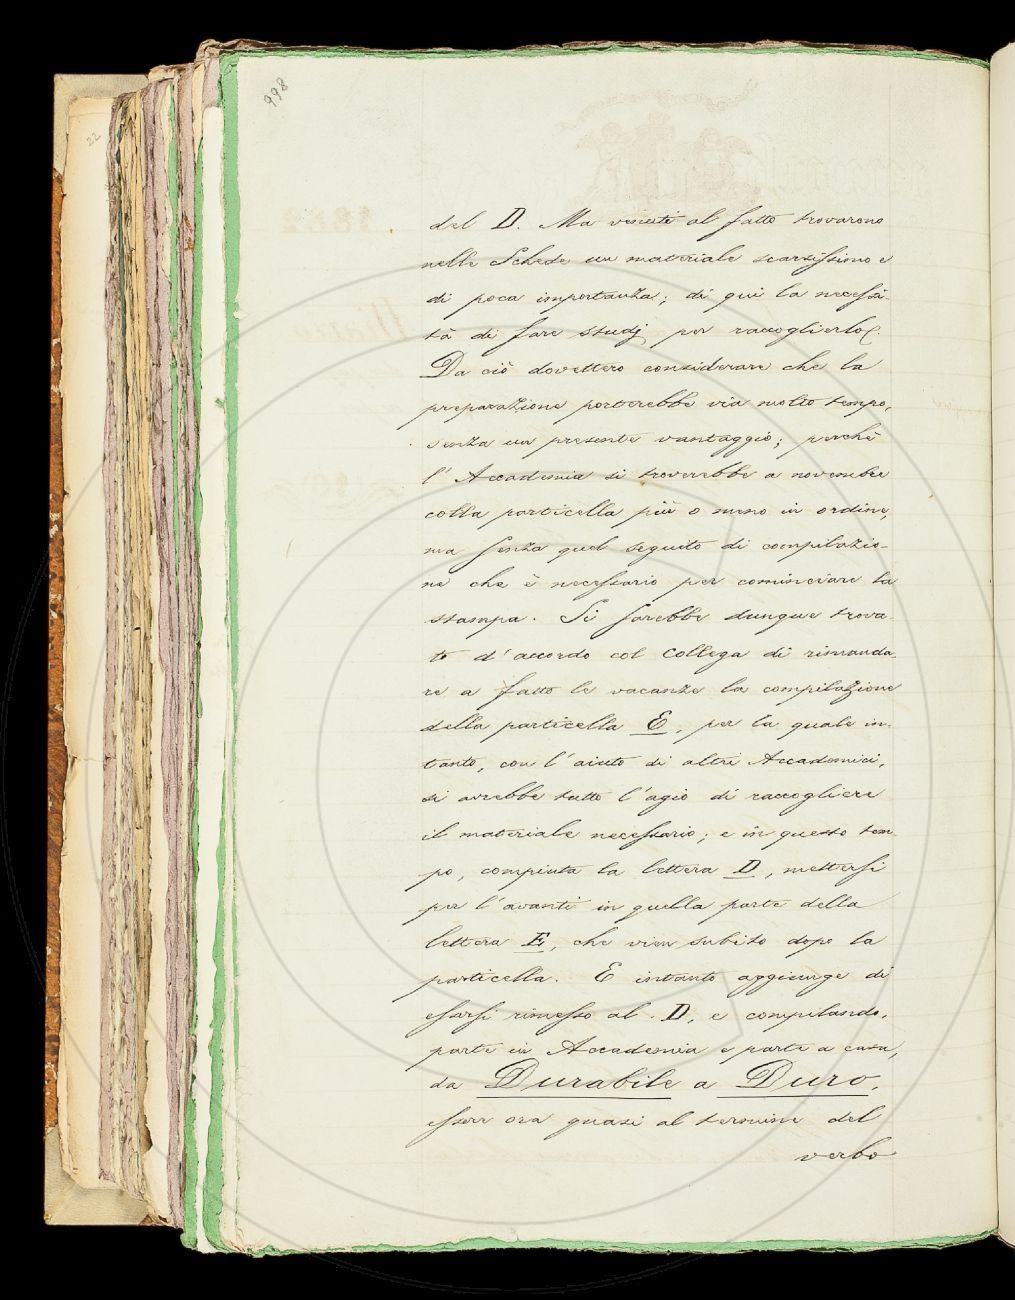 998
22
del D. Ma venuti al fatto trovarono
nelle Schede un materiale scarsissimo e
di poca importanza; di qui la necessi-
tà di fare studj per raccoglierlo.
Da ciò dovettero considerare che la
preparazione porterebbe via molto tempo,
senza un presente vantaggio; perchè
l'Accademia si troverebbe a novembre
colla particella più o meno in ordine,
ma senza quel seguito di compilazio-
ne che è necessario per cominciare la
stampa. Si sarebbe dunque trova-
to d'accordo col Collega di rimanda-
re a fatto le vacanze la compilazione
della particella E, per la quale in-
tanto, con l'aiuto di altri Accademici,
si avrebbe tutto l'agio di raccogliere
il materiale necessario; e in questo tem-
po, compiuta la lettera D, mettersi
per l'avanti in quella parte della
lettera E, che vien subito dopo la
particella. E intanto aggiunge di
essersi rimesso al D, e compilando,
parte in Accademia e parte a casa,
da Durabile a Duro,
esser ora quasi al termine del
verbo